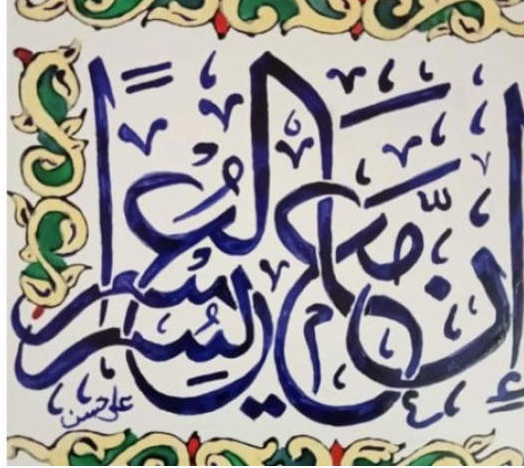 إنّ مع العسر يسراً
علي